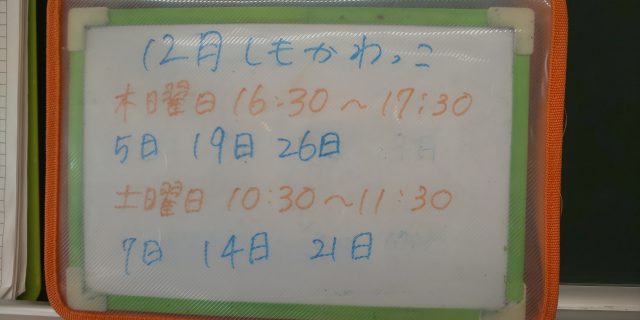 12月 しもかわっこ
木曜日 16:30～17:30
5日 19日 26日
土曜日 10:30～11:30
7日 14日 21日